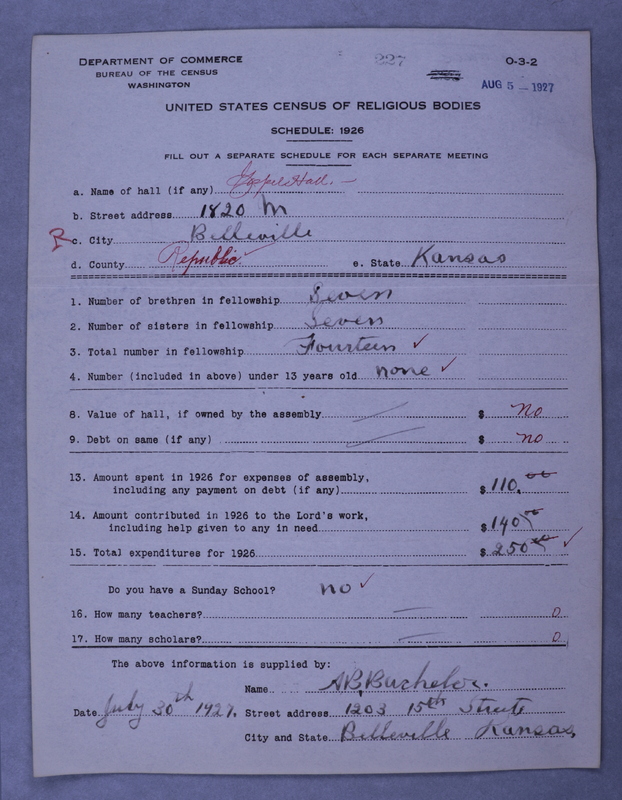 DEPARTMENT OF COMMERCE
BUREAU OF THE CENSUS
WASHINGTON
227
O-3-2
AUG 5 - 1927
UNITED STATES CENSUS OF RELIGIOUS BODIES
SCHEDULE: 1926
FILL OUT A SEPARATE SCHEDULE FOR EACH SEPARATE MEETING
a. Name of hall (if any) Gospel Hall. -
b. Street address 1820 M
R c. City Belleville
d. County Republic ✓ e. State Kansas
1. Number of brethren in fellowship Seven
2. Number of sisters in fellowship Seven
3. Total number in fellowship Fourteen ✓
4. Number (included in above) under 13 years old none ✓
8. Value of hall, if owned by the assembly $ no
9. Debt on same (if any) $ no
13. Amount spent in 1926 for expenses of assembly,
including any payment on debt (if any) $ 110.00
14. Amount contributed in 1926 to the Lord's work,
including help given to any in need $ 140 00
15. Total expenditures for 1926 $ 250 00 ✓
Do you have a Sunday School? no ✓
16. How many teachers? — 0
17. How many scholars? — 0
The above information is supplied by:
Name A.B. Bachelor.
Date July 30th 1927. Street address 1203 15th Streete
City and State Belleville Kansas,